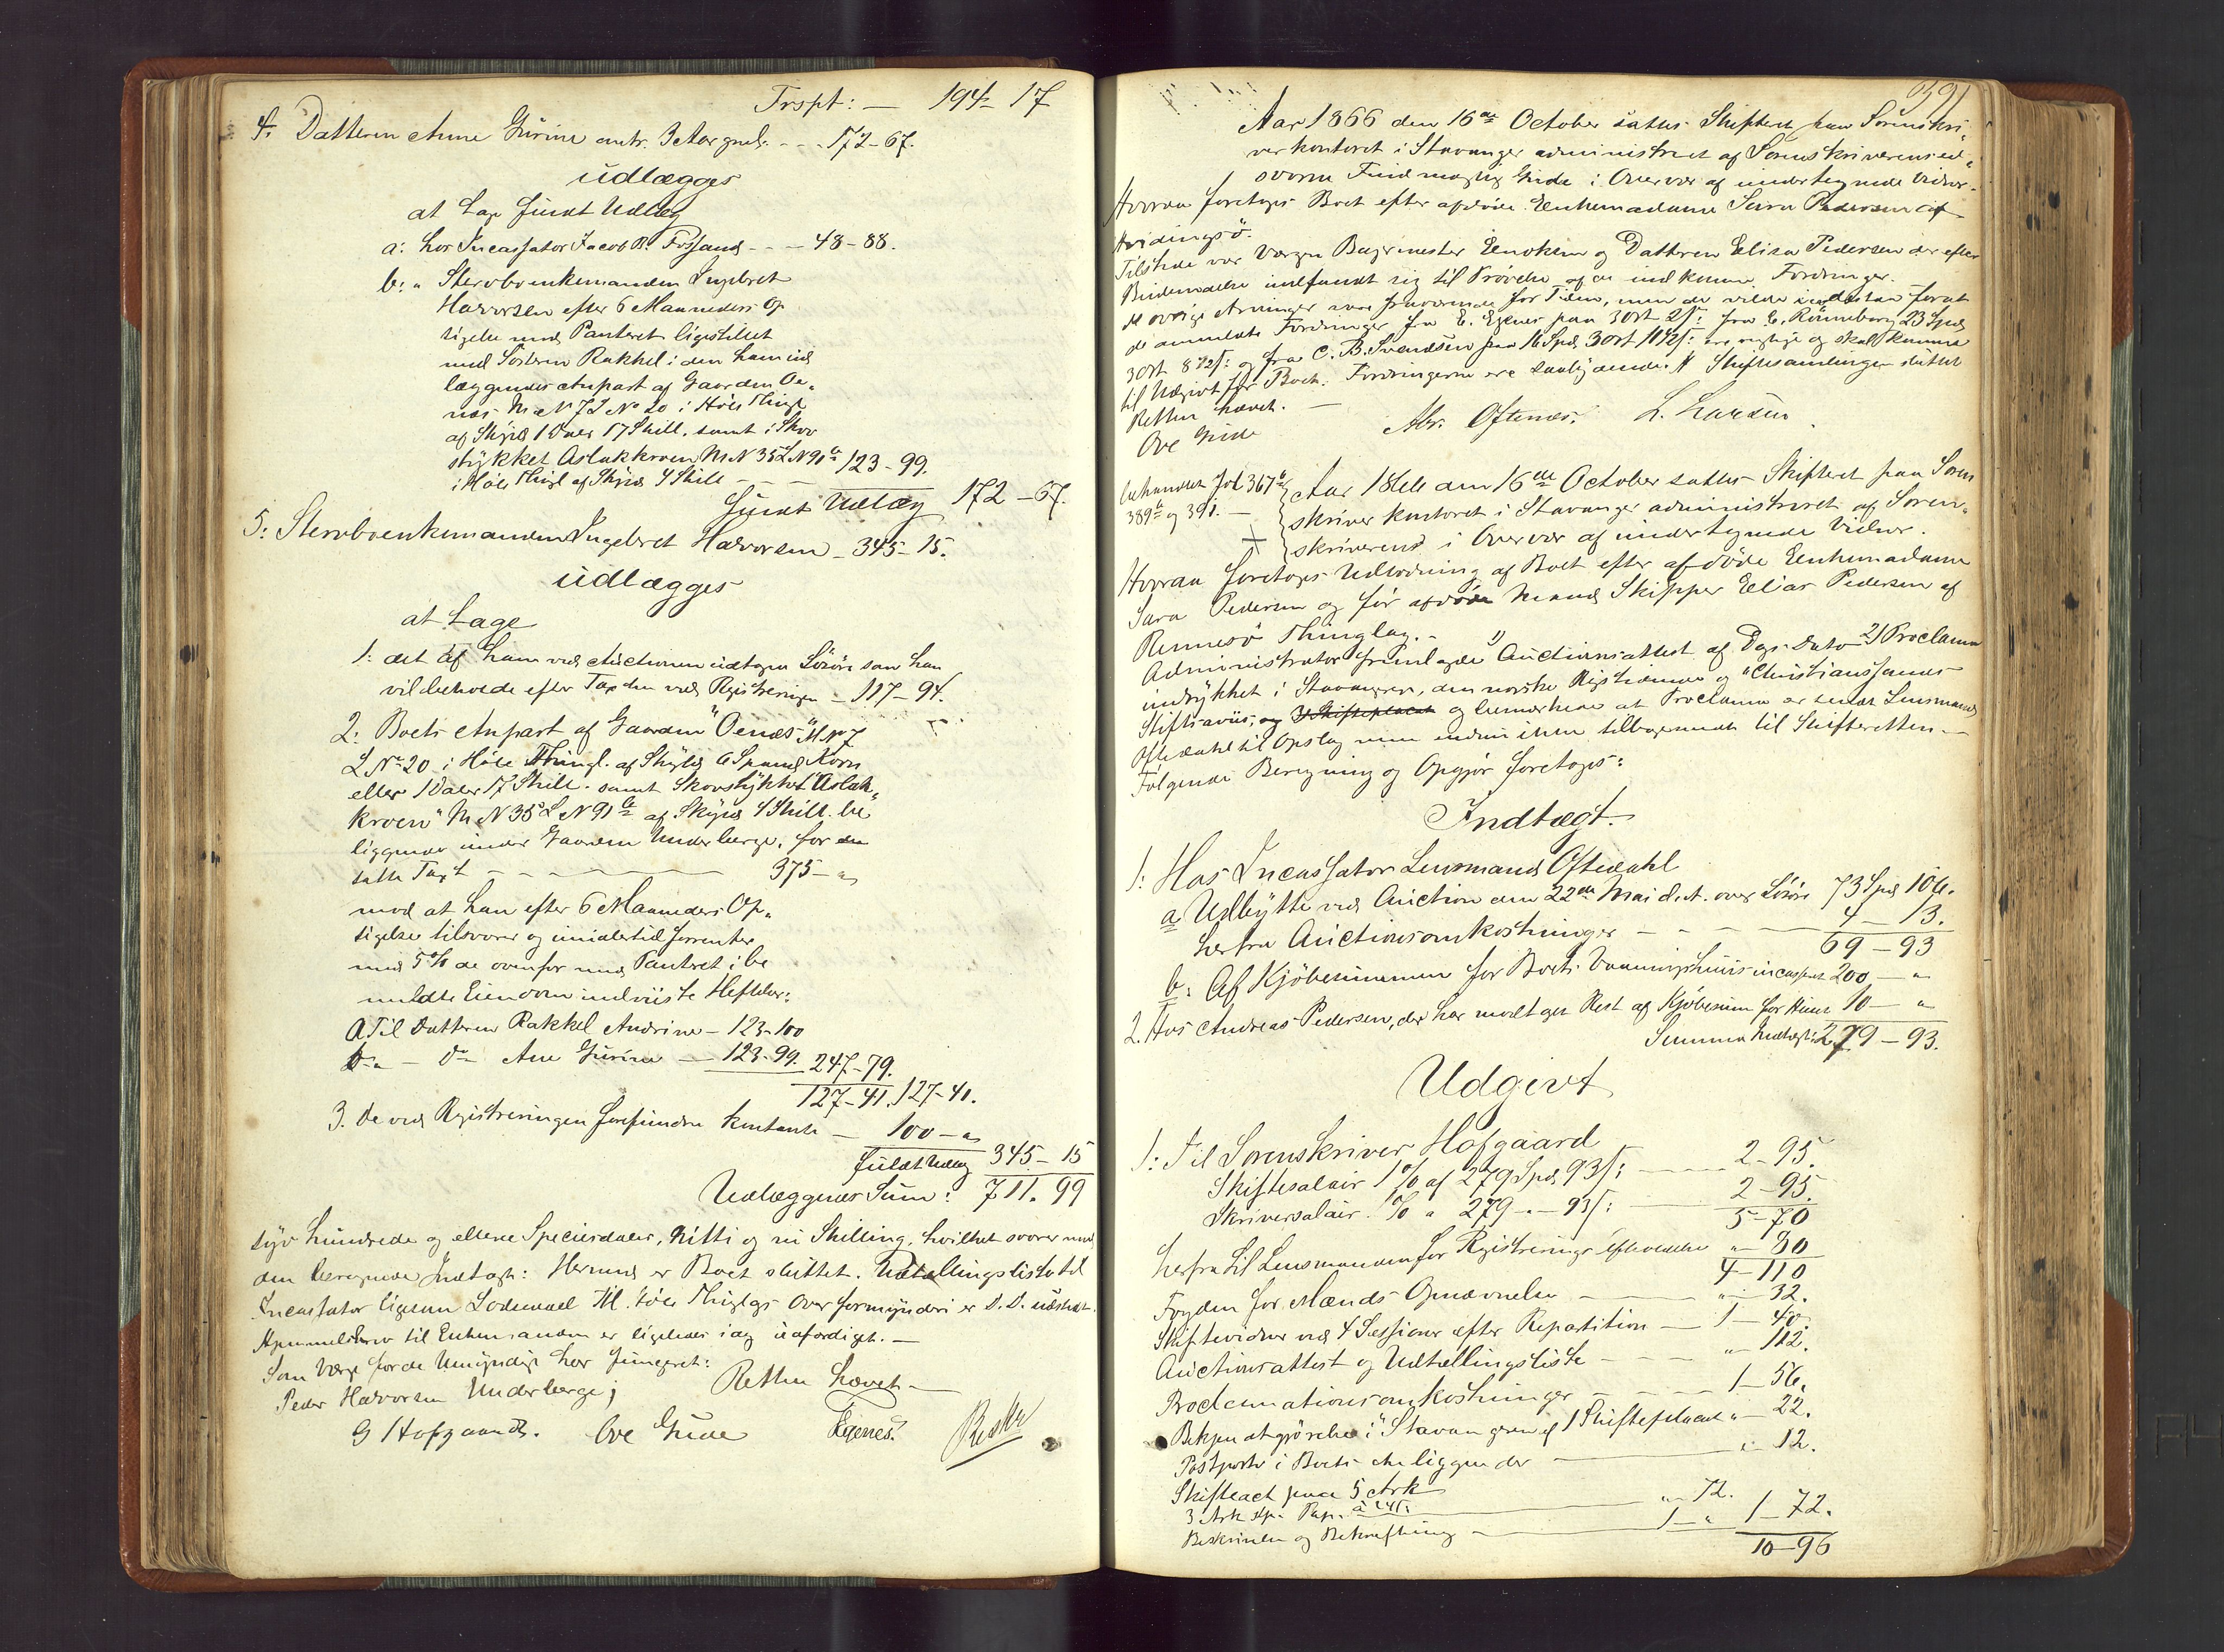 Trspt: — 194 - 17
4. Datteren Anne Gurine 172-67.
udlægges
at tage fuldt Udlæg
a: hos Incassator Jacob R. Fossand - - - 48-88.
b: " Stervboenkemanden Ingebret
Halvorsen efter 6 Maaneders Op
sigelse med Panteret ligestillet
med Søsteren Rakkel i den ham ud
læggendes Anpart af Gaarden Oe„
næs M N 7 L No 20 i Høle Thingl
af Skyld 1 Daler 17 Skill. samt i Skov
stykket Aslakkroen M N 35 L N 91 a 123-99.
i Høle Thingl af Skyld 4 Skill - - -
fuldt Udlæg 172-67.
5: Stervboenkemanden Ingebret Halvorsen - 345-15.
udlægges
at tage
1: det af ham ved Auctionen udtagne Løsøre som han
vil beholde efter Taxten ved Registreringen - 117-94.
2: Boets Anpart af Gaarden "Oenæs" M N 7
L No 20 i Høle Thingl. af Skyld 6 Spand Korn
eller 1 Daler 17 Skill. samt Skovstykket "Aslak„
kroen" M N 35 L N 91 a af Skyld 4 Skill. be
liggende under Gaarden Underberge, for
satte Taxt - - - 375 - "
mod at han efter 6 Maaneders Op„
sigelse tilsvarer og imidlertid forrenter
med 5 % de ovenfor med Panteret i be
meldte Eiendom indviiste Heftelser:
a Til Datteren Rakkel Andrine - 123-100
b " - do Ane Gurine - 123-99. 247-79.
127-41. 127-41.
3. De ved Registreringen forefundne kontante - 100 - "
fuldt Udlæg 345-15
Udlæggenes Sum: 711. 99
syv hundrede og elleve Speciedaler, nitti og ni Skilling, hvilket svarer mod
den beregnede Indtægt: Hermed er Boet sluttet. Udtællingsliste til
Incassator ligesom til Høle Thinglags Overformynderi er D. D. udstedt.
Hjemmelsbrev til Enkemanden er ligeledes idag udfærdiget. —
Som Værge for de Umyndige har fungeret:
Peder Halvorsen Underberge; Retten hævet —
G Hofgaard. Ove Gude Egenes.
391
Aar 1866 den 16de October sattes Skifteret paa Sorenskri„
verkontoret i Stavanger administreret af Sorenskriverens ed„
svorne Fuldmægtig Gude i Overvær af undertegnede Vidner.
Hvoraa foretoges Boet efter afdøde Enkemadame Sara Pedersen af
Hvidingsø.
Tilstede var Værgen Bagermester Enoksen og Datteren Elisa Pedersen der efter
Berammelse indfandt sig til Prøvelse af de indkomne Fordringer.
de øvrige Arvinger vare fraværende for Tiden, men de vilde indestaa for at
de anmeldte Fordringer fra E. Egenes paa 3 Ort 2 ß: fra E. Rønneberg 23 Spd
3 Ort 8 1/2 ß: og fra C. B. Svendsen paa 16 Spd 3 Ort 11 1/2 ß: ere rigtige og skal komme
til Udgivt for Boet. Fordringerne ere saalydende: # Skiftesamlingen sluttet
Retten hævet. —
Ove Gude Abr. Oftenæs. L. Larsen
behandlet fol 367 b
389 a og 391. —
Aar 1866 den 16de October sattes Skifteret paa Soren
skriverkontoret i Stavanger administreret af Soren„
skriveren i Overvær af undertegnede Vidner.
Hvoraa foretoges Udlodning af Boet efter afdøde Enkemadame
Sara Pedersen og før afdøde Mand Skipper Elias Pedersen af
Rennesø Thinglag. -
Administrator fremlagde 1) Auctionsattest af Dags Dato 2) Proclama
indrykket i Stavangeren, den norske Rigstidende og "Christianssands
Stiftsavis, og 3 Skifteplacat og bemærkede at Proclama er sendt Lensmand
Oftedahl til Opslag men endnu ikke tilbagesendt til Skifteretten. —
Følgende Beregning og Opgjør foretoges:
Indtægt.
1: Hos Incassator Lensmand Oftedahl
a Udbytte ved Auction den 22de Mai d. A. over Løsøre 73 Spd 106.
herfra Auctionsomkostninger - - - 4-13.
69-93
b: Af Kjøbesummen for Boets Vaaningshuus incasseret 200 - "
2. Hos Andreas Pedersen, der har modtaget Rest af Kjøbesum for Huset 10 - "
Summa Indtægt: 279-93.
Udgivt
1: Til Sorenskriver Hofgaard
Skiftesalair 1 % af 279 Spd 93 ß: — 2-95.
Skriversalair % " 279 - " - 93 ß: — 2-95.
5-70
herfra til Lensmanden for Registrerings Afholdelse " - 80
4-110
Fogden for Mænds Opnævnelse — " - 32.
Skiftevidner ved 4 Sessioner efter Repartition — 1-40
Auctionsattest og Udtællingsliste - - - " - 112.
Proclamationsomkostninger - - - 1-56.
Bekjendtgjørelse i "Stavangeren og 1 Skifteplacat " - 22.
Postporto i Boets Anliggender — " - 12.
Skifteact paa 5 Ark
3 Ark stp. Pap. a 24 ß. — " - 72.
Beskrivelse og Bekræftning — 1 - " 1-72.
10-96